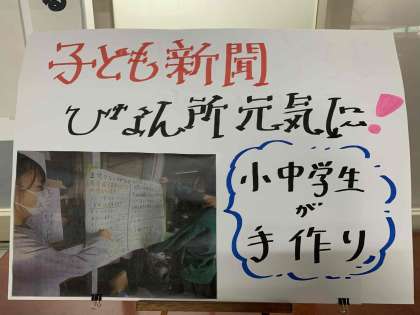 子ども新聞
びょん所元気に!
小中学生
が
手作り